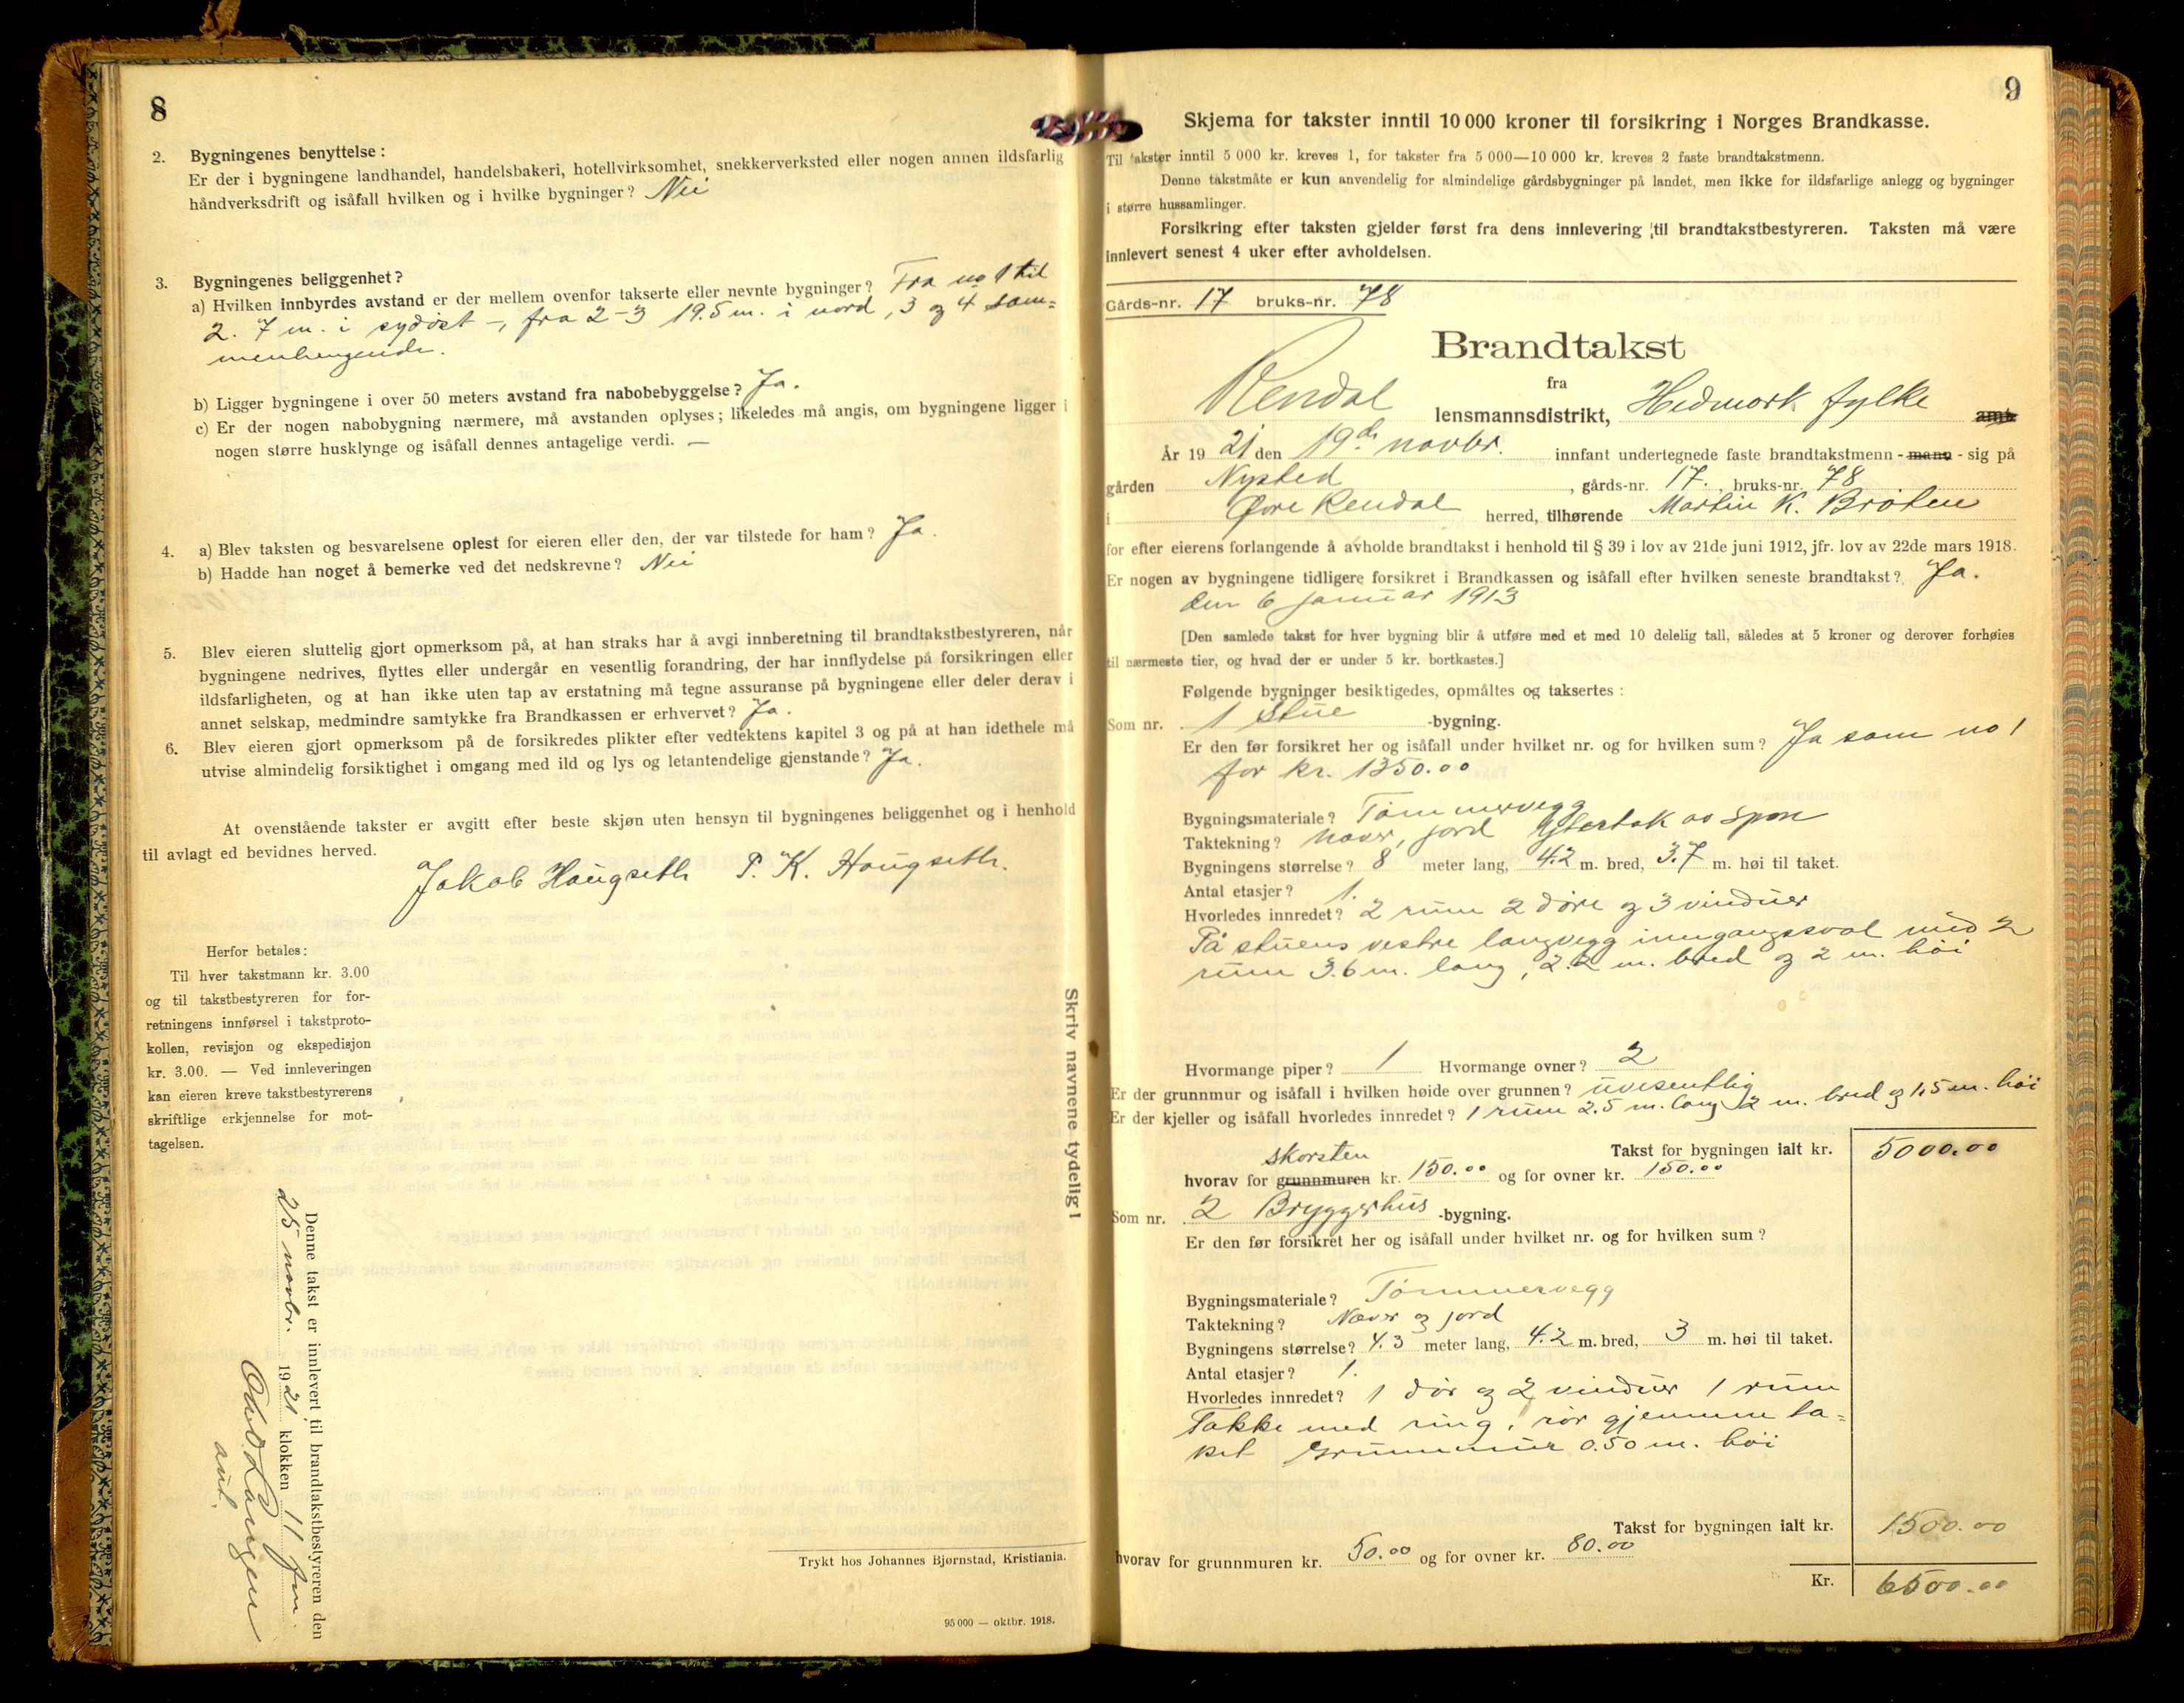 8
2. Bygningenes benyttelse:
Er der i bygningene landhandel, handelsbakeri, hotellvirksomhet, snekkerverksted eller nogen annen ildsfarlig
håndverksdrift og isåfall hvilken og i hvilke bygninger? Nei
3. Bygningenes beliggenhet?
a) Hvilken innbyrdes avstand er der mellem ovenfor takserte eller nevnte bygninger? Fra no 1 til
2. 7 m. i sydöst -, fra 2-3 19.5 m. i nord, 3 og 4 sam=
menhengende.
b) Ligger bygningene i over 50 meters avstand fra nabobebyggelse? Ja.
c) Er der nogen nabobygning nærmere, må avstanden oplyses; likeledes må angis, om bygningene ligger i
nogen større husklynge og isåfall dennes antagelige verdi. —
4. a) Blev taksten og besvarelsene oplest for eieren eller den, der var tilstede for ham? Ja.
b) Hadde han noget å bemerke ved det nedskrevne? Nei
5. Blev eieren sluttelig gjort opmerksom på, at han straks har å avgi innberetning til brandtakstbestyreren, når
bygningene nedrives, flyttes eller undergår en vesentlig forandring, der har innflydelse på forsikringen eller
ildsfarligheten, og at han ikke uten tap av erstatning må tegne assuranse på bygningene eller deler derav i
annet selskap, medmindre samtykke fra Brandkassen er erhvervet? Ja.
6. Blev eieren gjort opmerksom på de forsikredes plikter efter vedtektens kapitel 3 og på at han idethele må
utvise almindelig forsiktighet i omgang med ild og lys og letantendelige gjenstande? Ja.
At ovenstående takster er avgitt efter beste skjøn uten hensyn til bygningenes beliggenhet og i henhold
til avlagt ed bevidnes herved.
Jakob Haugseth P. K. Haugseth.
Herfor betales:
Til hver takstmann kr. 3.00
og til takstbestyreren for for-
retningens innførsel i takstproto-
kollen, revisjon og ekspedisjon
kr. 3.00. — Ved innleveringen
kan eieren kreve takstbestyrerens
skriftlige erkjennelse for mot-
tagelsen.
Denne takst er innlevert til brandtakstbestyreren den
25 novbr. 1921 klokken 11 fm.
Skriv navnene tydelig!
Trykt hos Johannes Bjørnstad, Kristiania.
95 000 — oktbr. 1918.
9
Skjema for takster inntil 10 000 kroner til forsikring i Norges Brandkasse.
Til takster inntil 5 000 kr. kreves 1, for takster fra 5 000—10 000 kr. kreves 2 faste brandtakstmenn.
Denne takstmåte er kun anvendelig for almindelige gårdsbygninger på landet, men ikke for ildsfarlige anlegg og bygninger
i større hussamlinger.
Forsikring efter taksten gjelder først fra dens innlevering til brandtakstbestyreren. Taksten må være
innlevert senest 4 uker efter avholdelsen.
Gårds-nr. 17 bruks-nr. 78
Brandtakst
fra
Rendal lensmannsdistrikt, Hedmark fylke amt
År 1921 den 19de novbr. innfant undertegnede faste brandtakstmenn - mann - sig på
gården Nysted, gårds-nr. 17., bruks-nr. 78
i Øvre Rendal herred, tilhørende Martin K. Bråten
for efter eierens forlangende å avholde brandtakst i henhold til § 39 i lov av 21de juni 1912, jfr. lov av 22de mars 1918.
Er nogen av bygningene tidligere forsikret i Brandkassen og isåfall efter hvilken seneste brandtakst? Ja.
den 6 januar 1913
[Den samlede takst for hver bygning blir å utføre med et med 10 delelig tall, således at 5 kroner og derover forhøies
til nærmeste tier, og hvad der er under 5 kr. bortkastes.]
Følgende bygninger besiktigedes, opmåltes og taksertes:
Som nr. 1 Stue -bygning.
Er den før forsikret her og isåfall under hvilket nr. og for hvilken sum? Ja som no 1
for kr. 1350.00
Bygningsmateriale? Tömmervegg
Taktekning? Næver, jord Yttertak av spon
Bygningens størrelse? 8 meter lang, 4.2 m. bred, 3.7 m. høi til taket.
Antal etasjer? 1.
Hvorledes innredet? 2 rum 2 döre og 3 vinduer
På stuens vestre langvegg inngangssval med 2
rum 3.6 m. lang, 2.2 m. bred og 2 m. höi
Hvormange piper? 1 Hvormange ovner? 2
Er der grunnmur og isåfall i hvilken høide over grunnen? uvesentlig
Er der kjeller og isåfall hvorledes innredet? 1 rum 2.5 m. lang 2 m. bred og 1.5 m. höi
Takst for bygningen ialt kr. 5000.00
skorsten
hvorav for grunnmuren kr. 150.00 og for ovner kr. 150.00
Som nr. 2 Bryggerhus -bygning.
Er den før forsikret her og isåfall under hvilket nr. og for hvilken sum?
Bygningsmateriale? Tömmervegg
Taktekning? Næver og jord
Bygningens størrelse? 4.3 meter lang, 4.2 m. bred, 3 m. høi til taket.
Antal etasjer? 1.
Hvorledes innredet? 1 dör og 2 vinduer 1 rum
Takke med ring, rör gjennem ta=
ket Grunnmur 0.50 m. höi
Takst for bygningen ialt kr. 1500.00
hvorav for grunnmuren kr. 50.00 og for ovner kr. 80.00
Kr. 6500.00